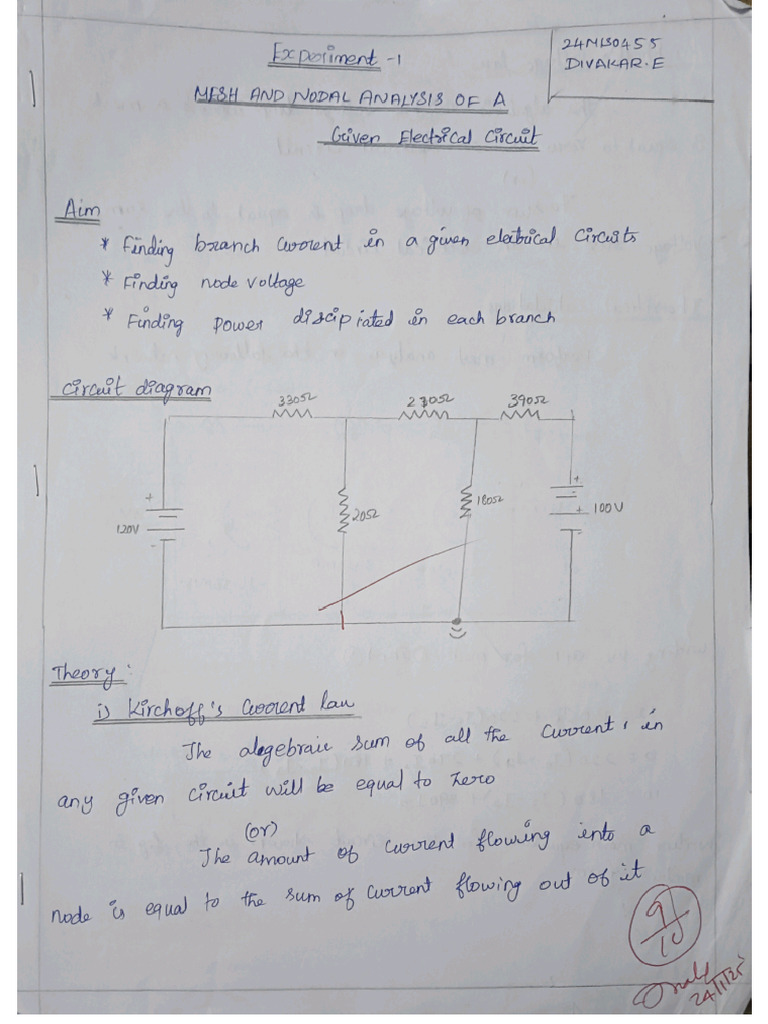 Experiment -1
24MIS0455
DIVAKAR.E
MESH AND NODAL ANALYSIS OF A
Given Electrical Circuit
Aim
* Finding branch current in a given electrical circuits
* Finding node voltage
* Finding power discipiated in each branch
Circuit diagram
330Ω
230Ω
390Ω
+
120V
-
20Ω
180Ω
+
+ 100V
-
Theory:
i) Kirchoff's Current law
The alegebraic sum of all the currents in
any given circuit will be equal to zero
(or)
The amount of current flowing into a
node is equal to the sum of current flowing out of it
9/10
24/1/25